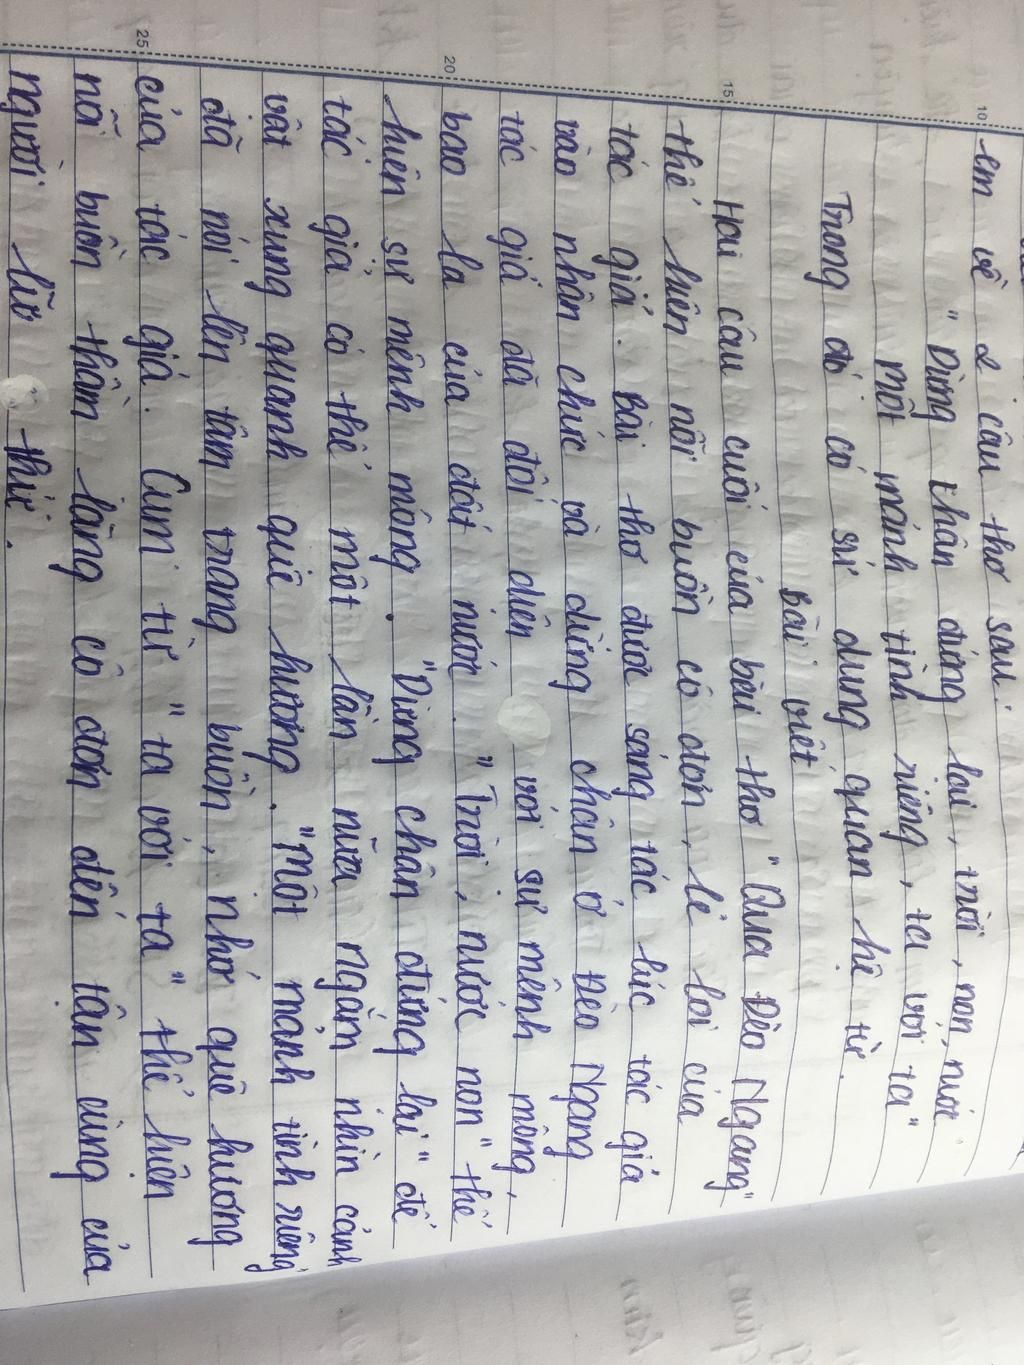 em về 2 câu thơ sau.
" Dừng chân đứng lại, trời, non, nước
Một mảnh tình riêng, ta với ta"
Trong đó có sử dụng quan hệ từ.
Bài viết
Hai câu cuối của bài thơ "Qua Đèo Ngang"
thể hiện nỗi buồn cô đơn, lẻ loi của
tác giả. Bài thơ được sáng tác lúc tác giả
vào nhận chức và dừng chân ở Đèo Ngang
tác giả đã đối diện với sự mênh mông,
bao la của đất nước. "Trời, nước non" thể
hiện sự mênh mông. "Dừng chân đứng lại" để
tác giả có thể một lần nữa ngắm nhìn cảnh
vật xung quanh quê hương. "Một mảnh tình riêng"
đã nói lên tâm trạng buồn, nhớ quê hương
của tác giả. Cụm từ "ta với ta" thể hiện
nỗi buồn thầm lặng cô đơn đến tận cùng của
người lữ thứ.
10
15
20
25